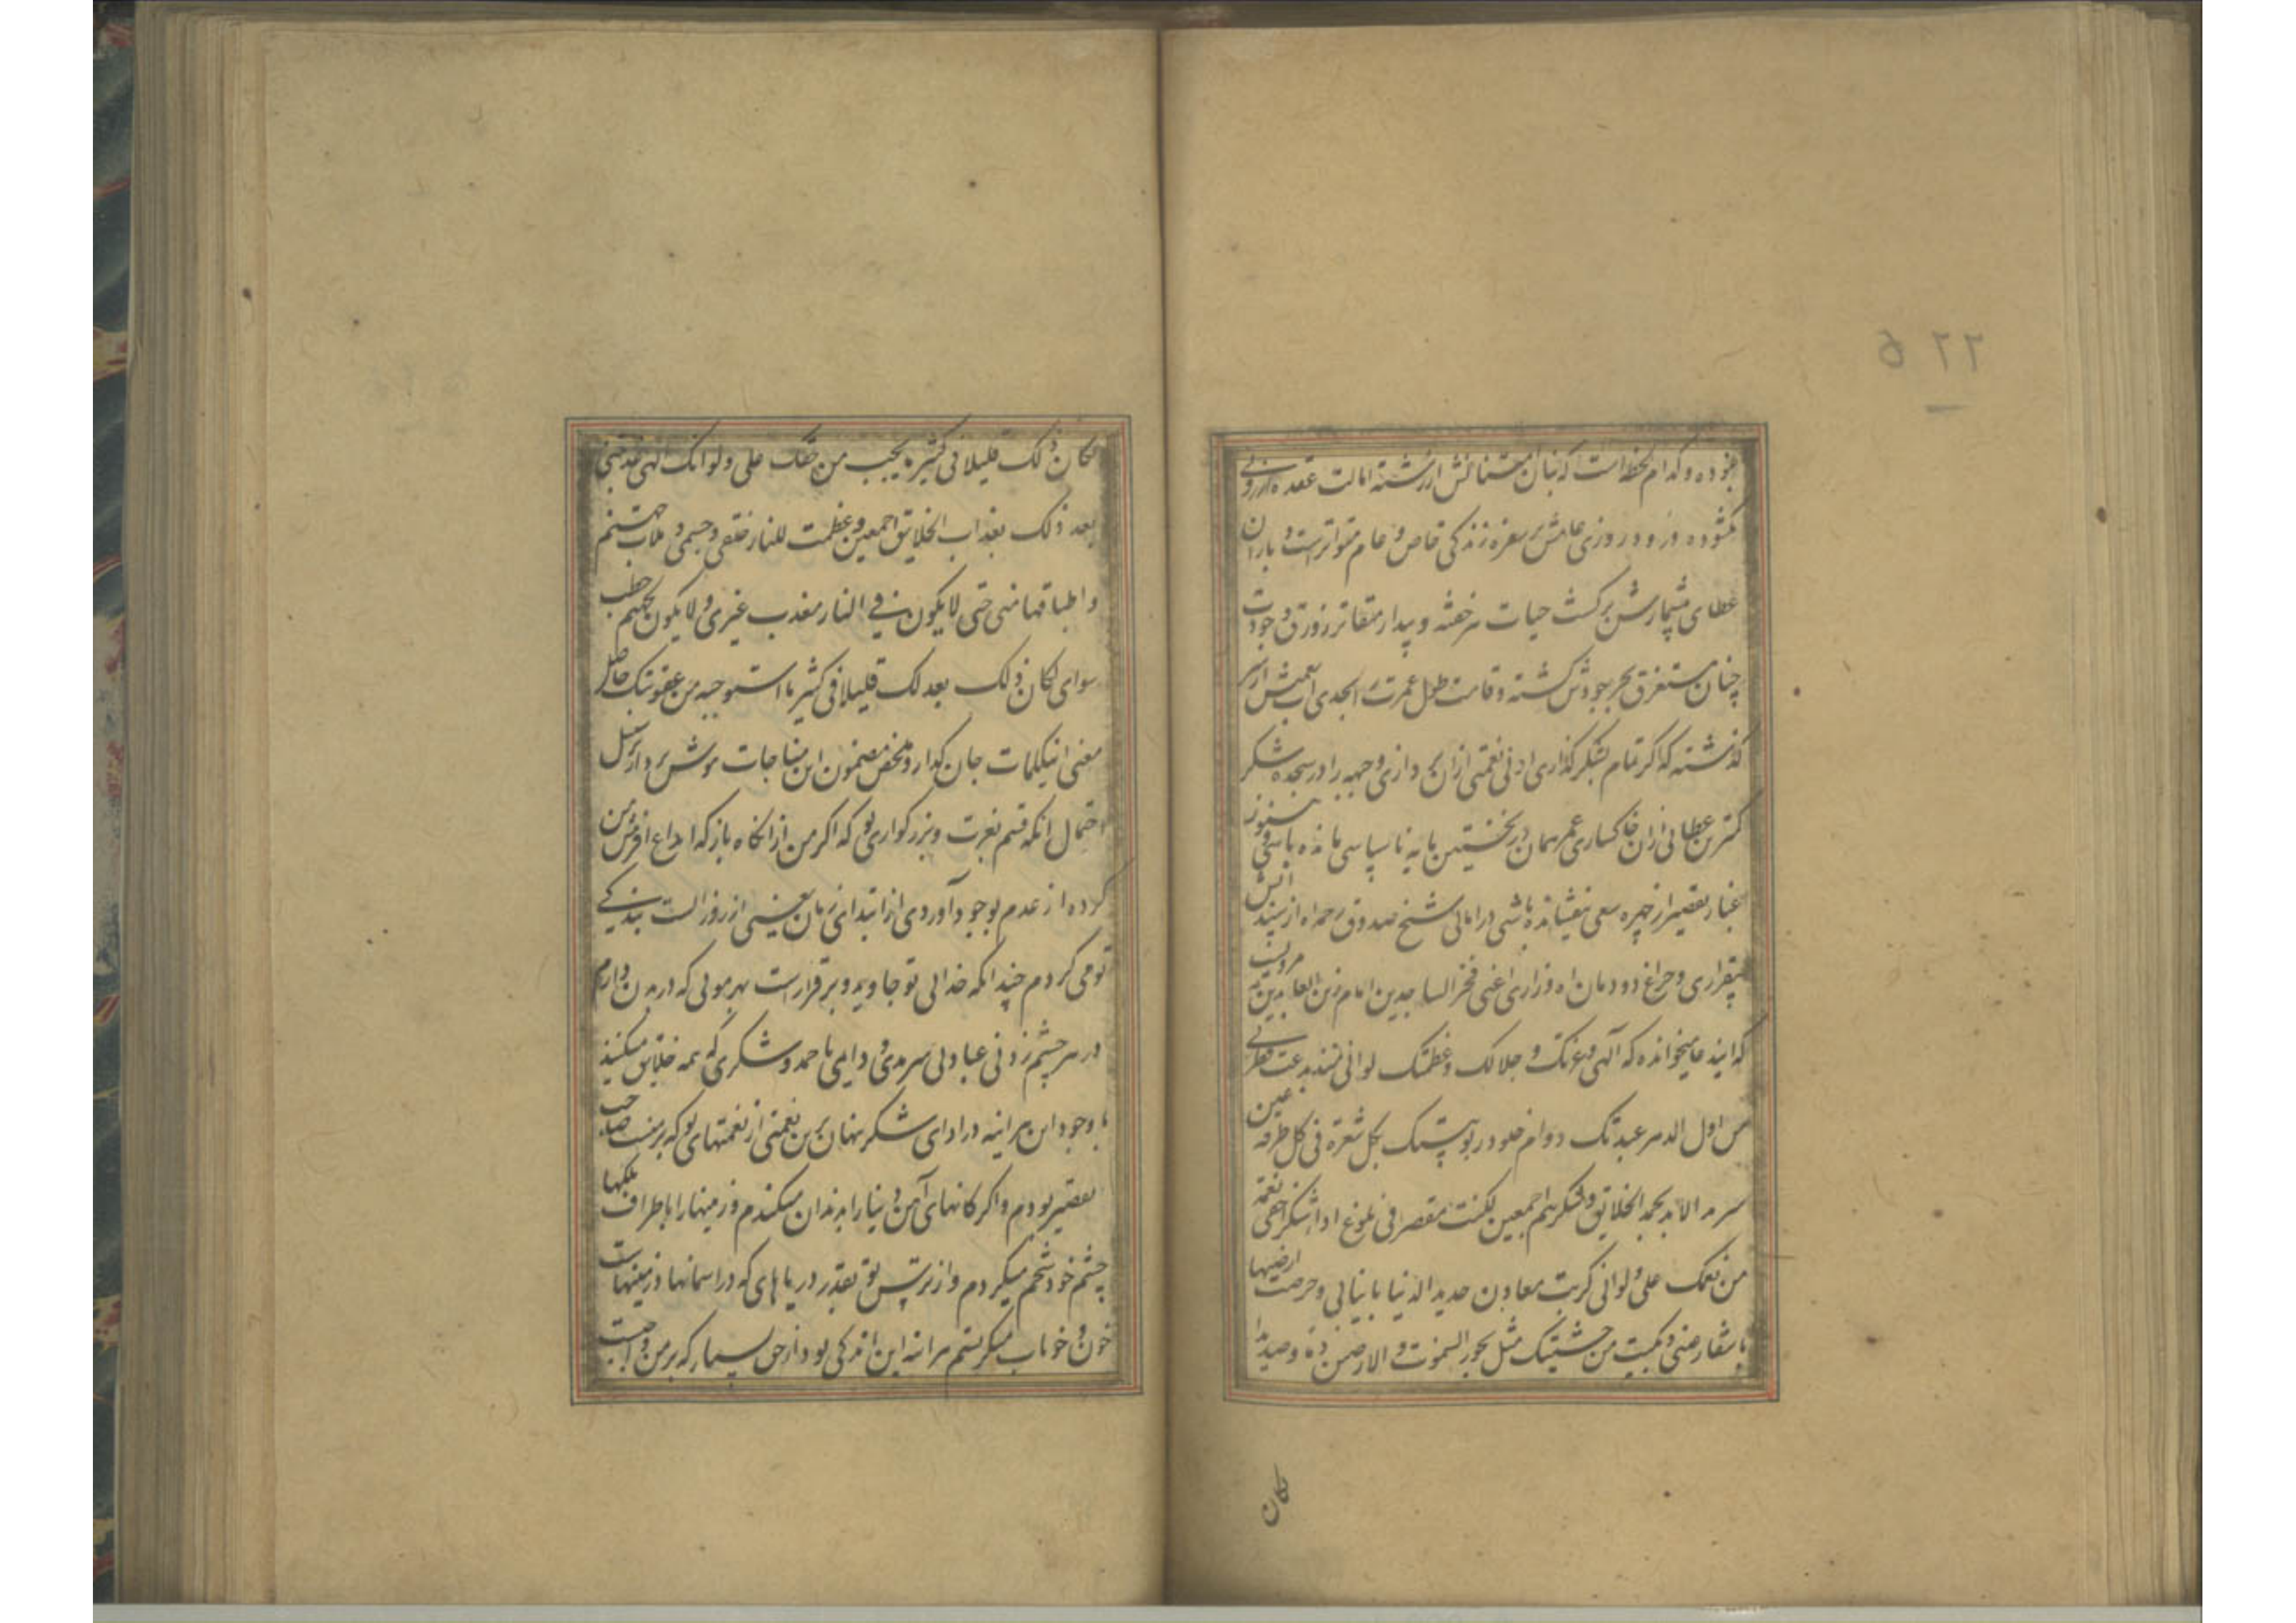 نبوده و کدام لحظه است که بنان امتنانش از رشته امالت عقده ارزوئی
نکشوده ورود روزی عامش بر سفره زندگی خاص و عام متواتر است و باران
عطای بیشمارش بر کشت حیات هر خفته و بیدار متقاتر زورق وجودت
چنان مستغرق بحر جودش کشته و قامت طول عمرت ابجدی آب نعمتش از سر
کذشته که اکر تمام بشکر کذاری ادنی نعمتی ازان پردازی وجبهه را در سجده شکر
کمترین عطائی ازان خاکساری عمر همان در نخستین پایه ناسپاسی مانده باشی و هنوز
غبار تقصیر از چهره سعی نیفشانده باشی در امالی شیخ صدوق رحمه اه از سپند اتش
بیقراری و چراغ دودمان اه وزاری اعنی فخر الساجدین امام زین العابدین مرویست
که ایندعا میخوانده که آلهی وعزتک و جلالک وعظمتک لو انی منذ بدعت فطرتی
من اول الدهر عبدتک دوام خلود ربوبیتک بکل شعرة فی کل طرفه عین
سرمد الابد بحمد الخلایق وشکرهم اجمعین لکنت مقصرا فی بلوغ اداء شکر اخفی نعمة
من نعمک علی ولو انی کربت معادن حدید الدنیا بانیابی وحرثت ارضیها
باشفار عینی وبکیت من خشیتک مثل بحور السموت والارضین دما وصدیدا
لکان
لکان ذلک قلیلا فی کثیر ما یجب من حقک علی ولو انک الهی عذبتنی
بعد ذلک بعذاب الخلایق اجمعین وعظمت للنار خلقی وجسمی وملات جهنم
واطباقها منی حتی لا یکون فی النار معذب غیری ولا یکون لجهنم حطب
سوای لکان ذلک بعدلک قلیلا فی کثیر ما استوجبه من عقوبتک حاصل
معنی اینکلمات جان کداز و ملخص مضمون این مناجات هوش پرداز بر سبیل
احتمال انکه قسم بعزت و بزرکواری تو که اکر من از انکاه باز که ابداع افرینش من
کرده از عدم بوجود آوردی از ابتدای زمان یعنی از روز الست بندکی
تو می کردم چندانکه خدائی تو جاوید و برقرار است بهر موئی که در بدن دارم
در هر چشم زدنی عبادتی سرمدی و دایمی با حمد و شکری که همه خلایق میکنند
با وجود این هر اینه در ادای شکر پنهان ترین نعمتی از نعمتهای تو که بر منست صاحب
تقصیر بودم و اکر کانهای آهن دنیا را بدندان میکندم و زمینها را باطراف پلکها
چشم خود شخم میکردم و از ترس تو بقدر دریاهای که در اسمانها و زمینهاست
خون و خوناب میکریستم هر اینه این اندکی بود از حق بسیار که بر من واجبست